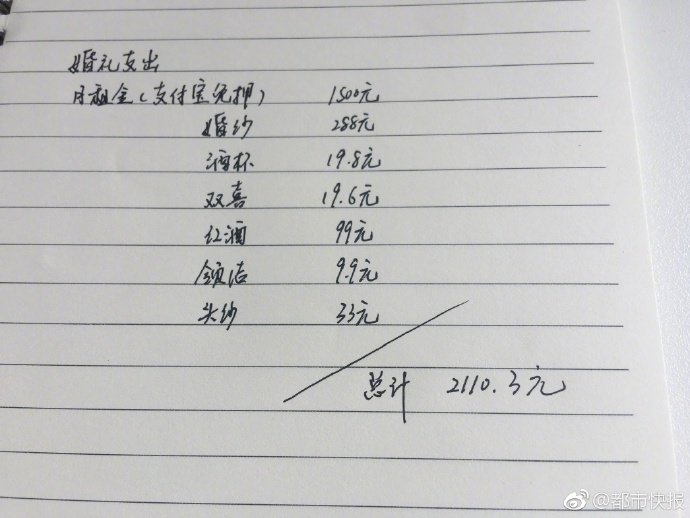 婚礼支出
月租金(支付宝免押) 1500元
婚纱 288元
酒杯 19.8元
双喜 19.6元
红酒 99元
领结 9.9元
头纱 33元
总计 2110.3元
@都市快报